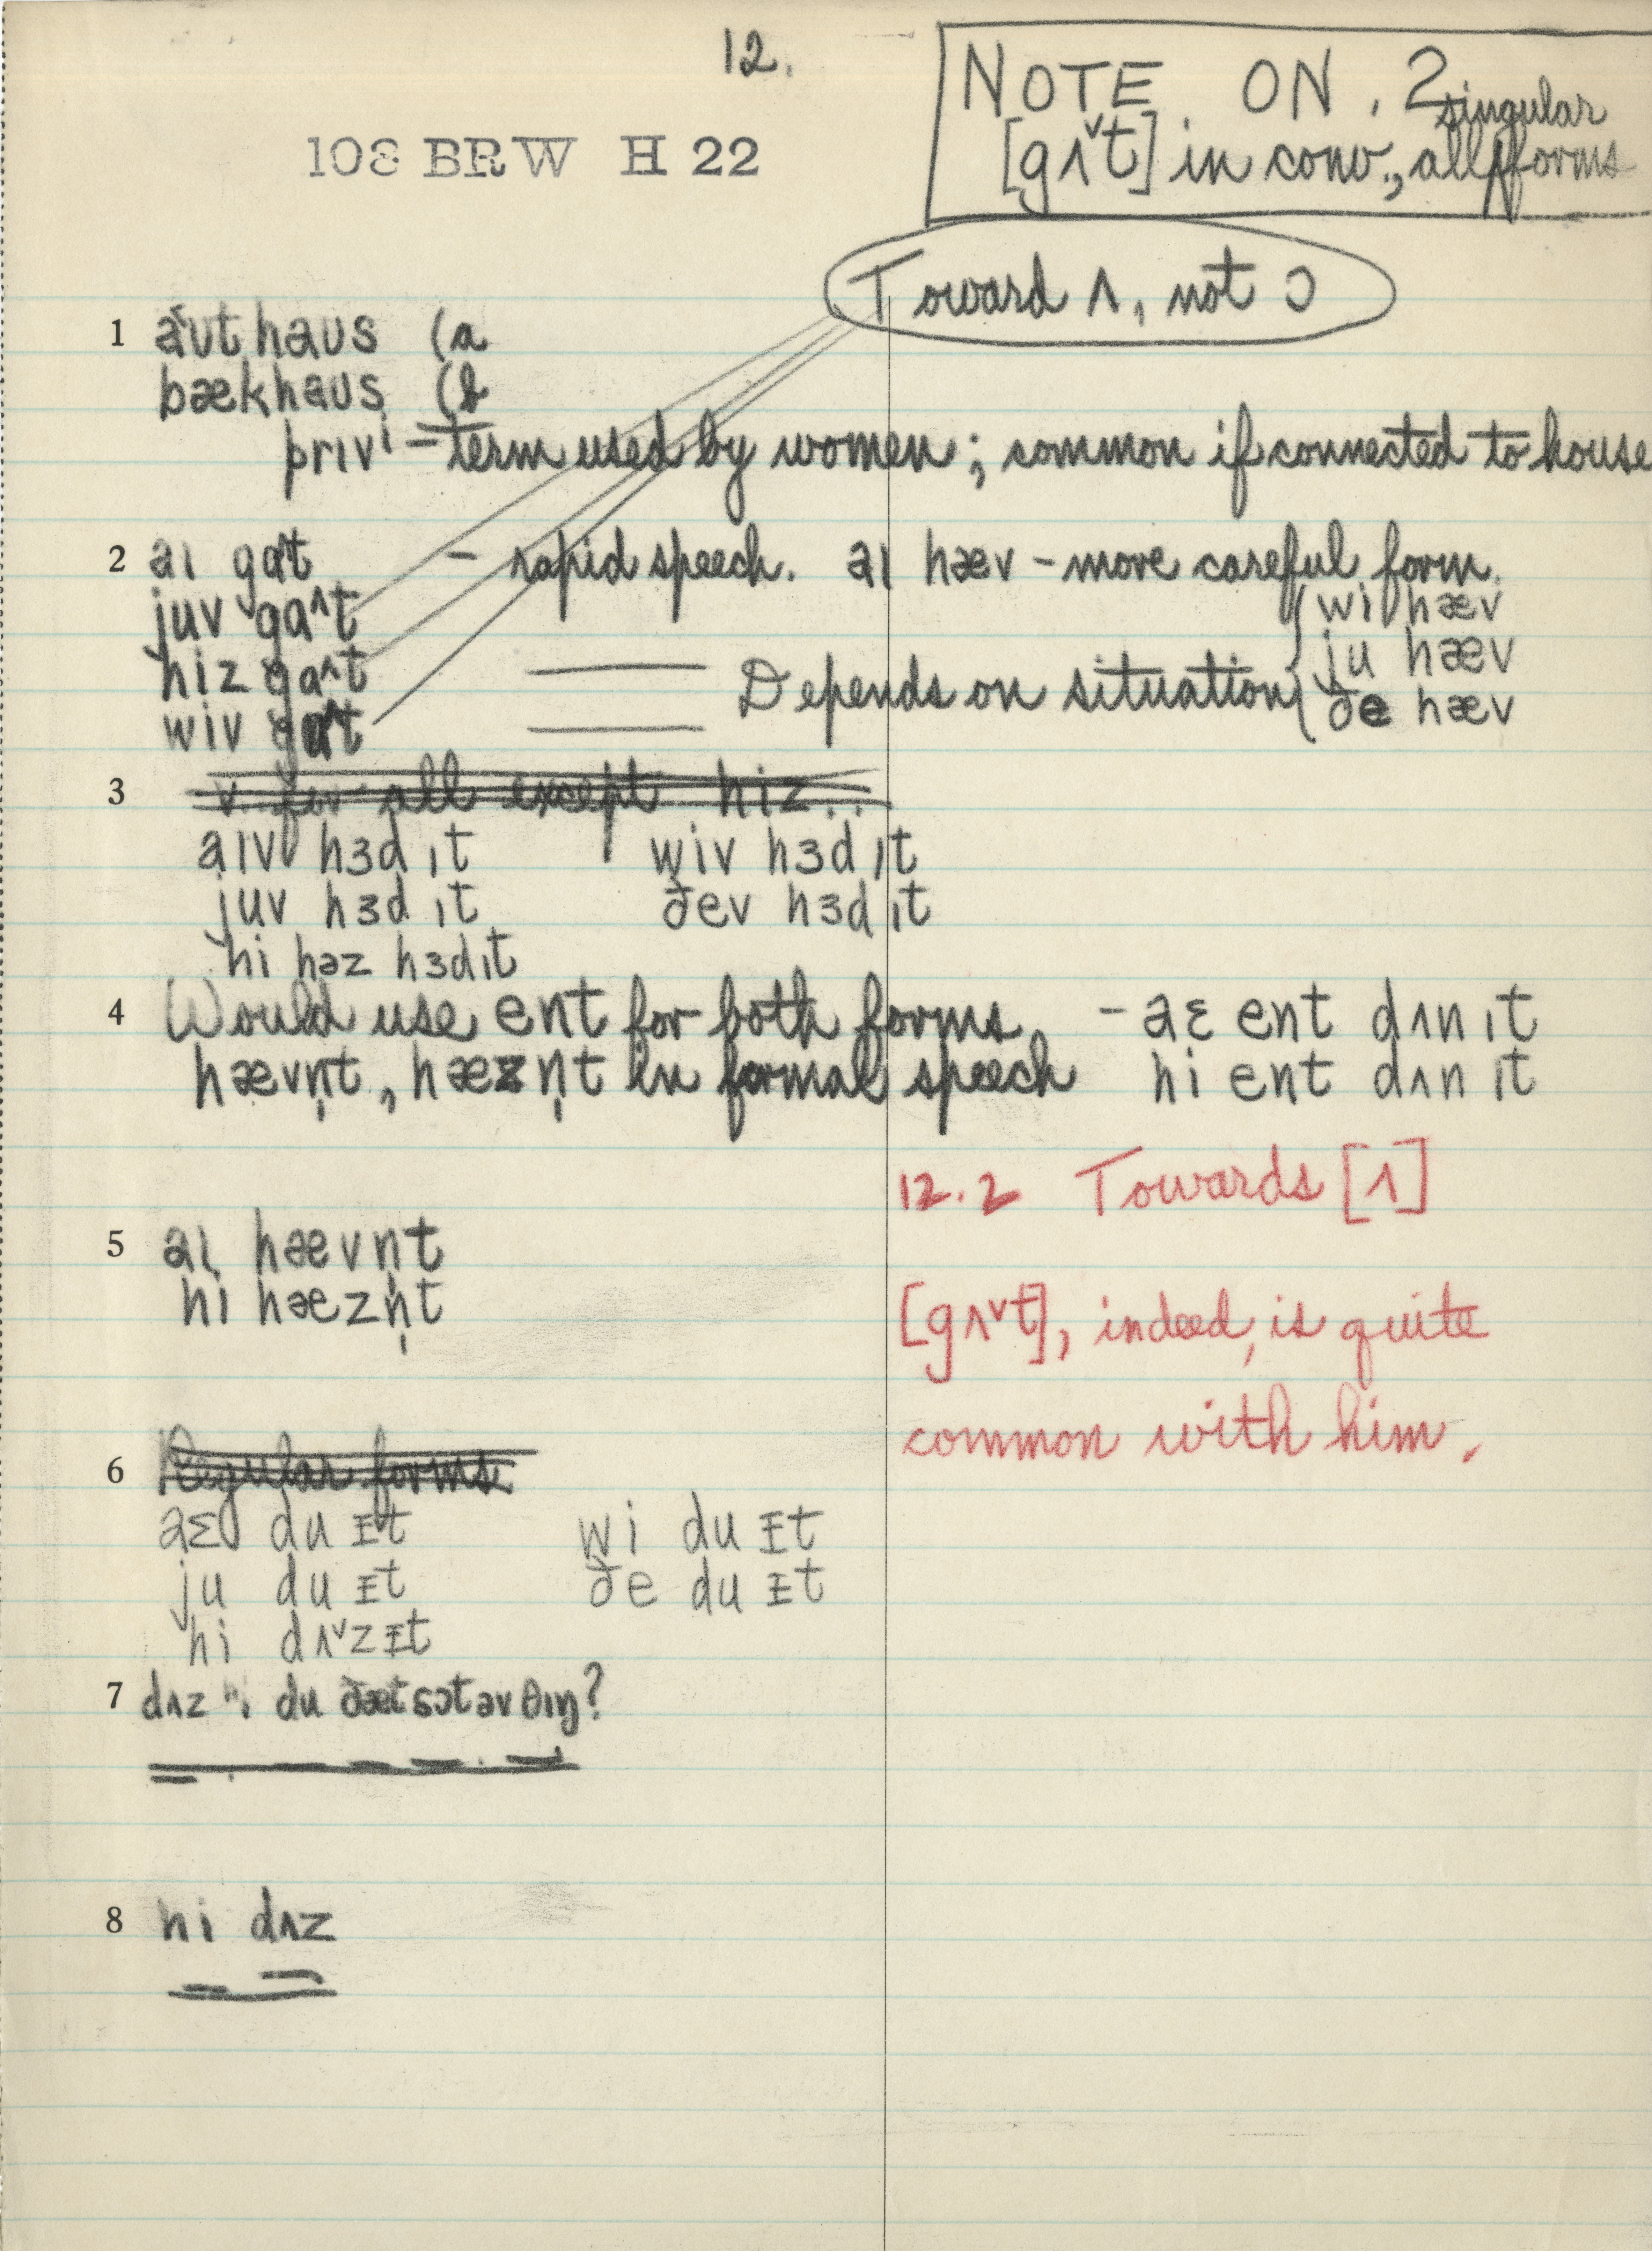 12.
NOTE ON 2
[gʌ˅t] in conv., all singular forms
108 BRW H 22
Toward ʌ, not ɔ
1 aʊthaʊs (a
bækhaʊs (b
prɪvi – term used by women; common if connected to house
2 aɪ gaʌt – rapid speech. aɪ hæv – more careful form.
juv gaʌt
hiz gaʌt
wiv gaʌt
Depends on situation
{ wi hæv
ju hæv
ðe hæv
3 v for all except hiz..
aɪv hɜd ɪt wiv hɜd ɪt
juv hɜd ɪt ðev hɜd ɪt
hi həz hɜd ɪt
4 Would use ent for both forms – aɛ ent dʌn ɪt
hævn̩t, hæzn̩t in formal speech hi ent dʌn ɪt
12.2 Towards [ʌ]
5 aɪ hævn̩t
hi hæzn̩t
[gʌ˅t], indeed, is quite
common with him.
6 Regular forms
aɛ du ɪt wi du ɪt
ju du ɪt ðe du ɪt
hi dʌ˅z ɪt
7 dʌz hi du ðæt sɔt əv θɪŋ?
8 hi dʌz